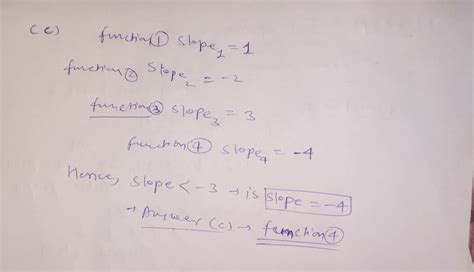 (c) function ① slope₁ = 1
function ② slope₂ = -2
function ③ slope₃ = 3
function ④ slope₄ = -4
Hence, slope < -3 → is slope = -4
→ Answer (c) → function ④